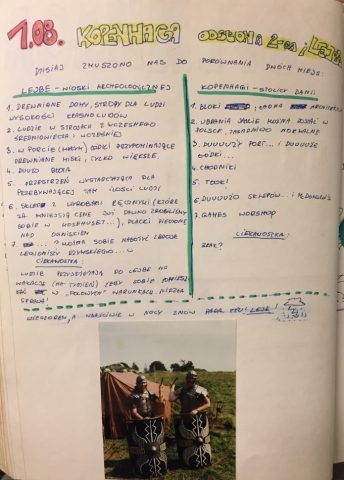 1.08. KOPENHAGA ODSŁONA 2-GA i LEJRE
DZISIAJ ZMUSZONO NAS DO PORÓWNANIA DWÓCH MIEJSC:
LEJRE - WIOSKI ARCHEOLOGICZNEJ
1. DREWNIANE DOMY, STROPY DLA LUDZI
WYSOKOŚCI KRASNOLUDÓW
2. LUDZIE W STROJACH Z WCZESNEGO
ŚREDNIOWIECZA I WCZEŚNIEJ
3. W PORCIE ŁÓDKI PRZYPOMINAJĄCE
DREWNIANE MISKI, TYLKO WIĘKSZE
4. DUŻO BŁOTA
5. PRZESTRZEŃ WYSTARCZAJĄCA DLA
PRZEBYWAJĄCEJ TAM ILOŚCI LUDZI
6. SKLEP Z WYROBAMI RĘCZNYMI (KTÓRE
ZA MNIEJSZĄ CENĘ JUŻ DAWNO ZROBILIŚMY
SOBIE W), PLACKI PIECZONE
NAD OGNISKIEM
7. MOŻNA SOBIE NAŁOŻYĆ ZBROJĘ
LEGIONISTY RZYMSKIEGO...
CIEKAWOSTKA
LUDZIE PRZYJEŻDŻAJĄ DO LEJRE NA
WAKACJE (NA TYDZIEŃ) ŻEBY SOBIE
W "POLOWYCH" WARUNKACH.
SPRAWA!
KOPENHAGI - STOLICY DANII
1. BLOKI
2. UBRANIA JAKIE MOŻNA ZOBACZYĆ W
POLSCE, ZASADNICZO NORMALNE
3. DUUUUŻY PORT... I DUUUŻE
ŁÓDKI...
4. CHODNIKI
5. TŁOK!
6. DUUUUŻO SKLEPÓW... I McDONALD'S
7. GAMES WORKSHOP
CIEKAWOSTKA:
BRAK?
WIECZOREM, A WŁAŚCIWIE W NOCY ZNÓW